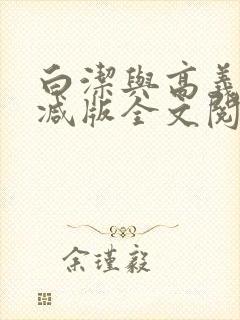 白潔與高義
减版全文閱
余瑾毅